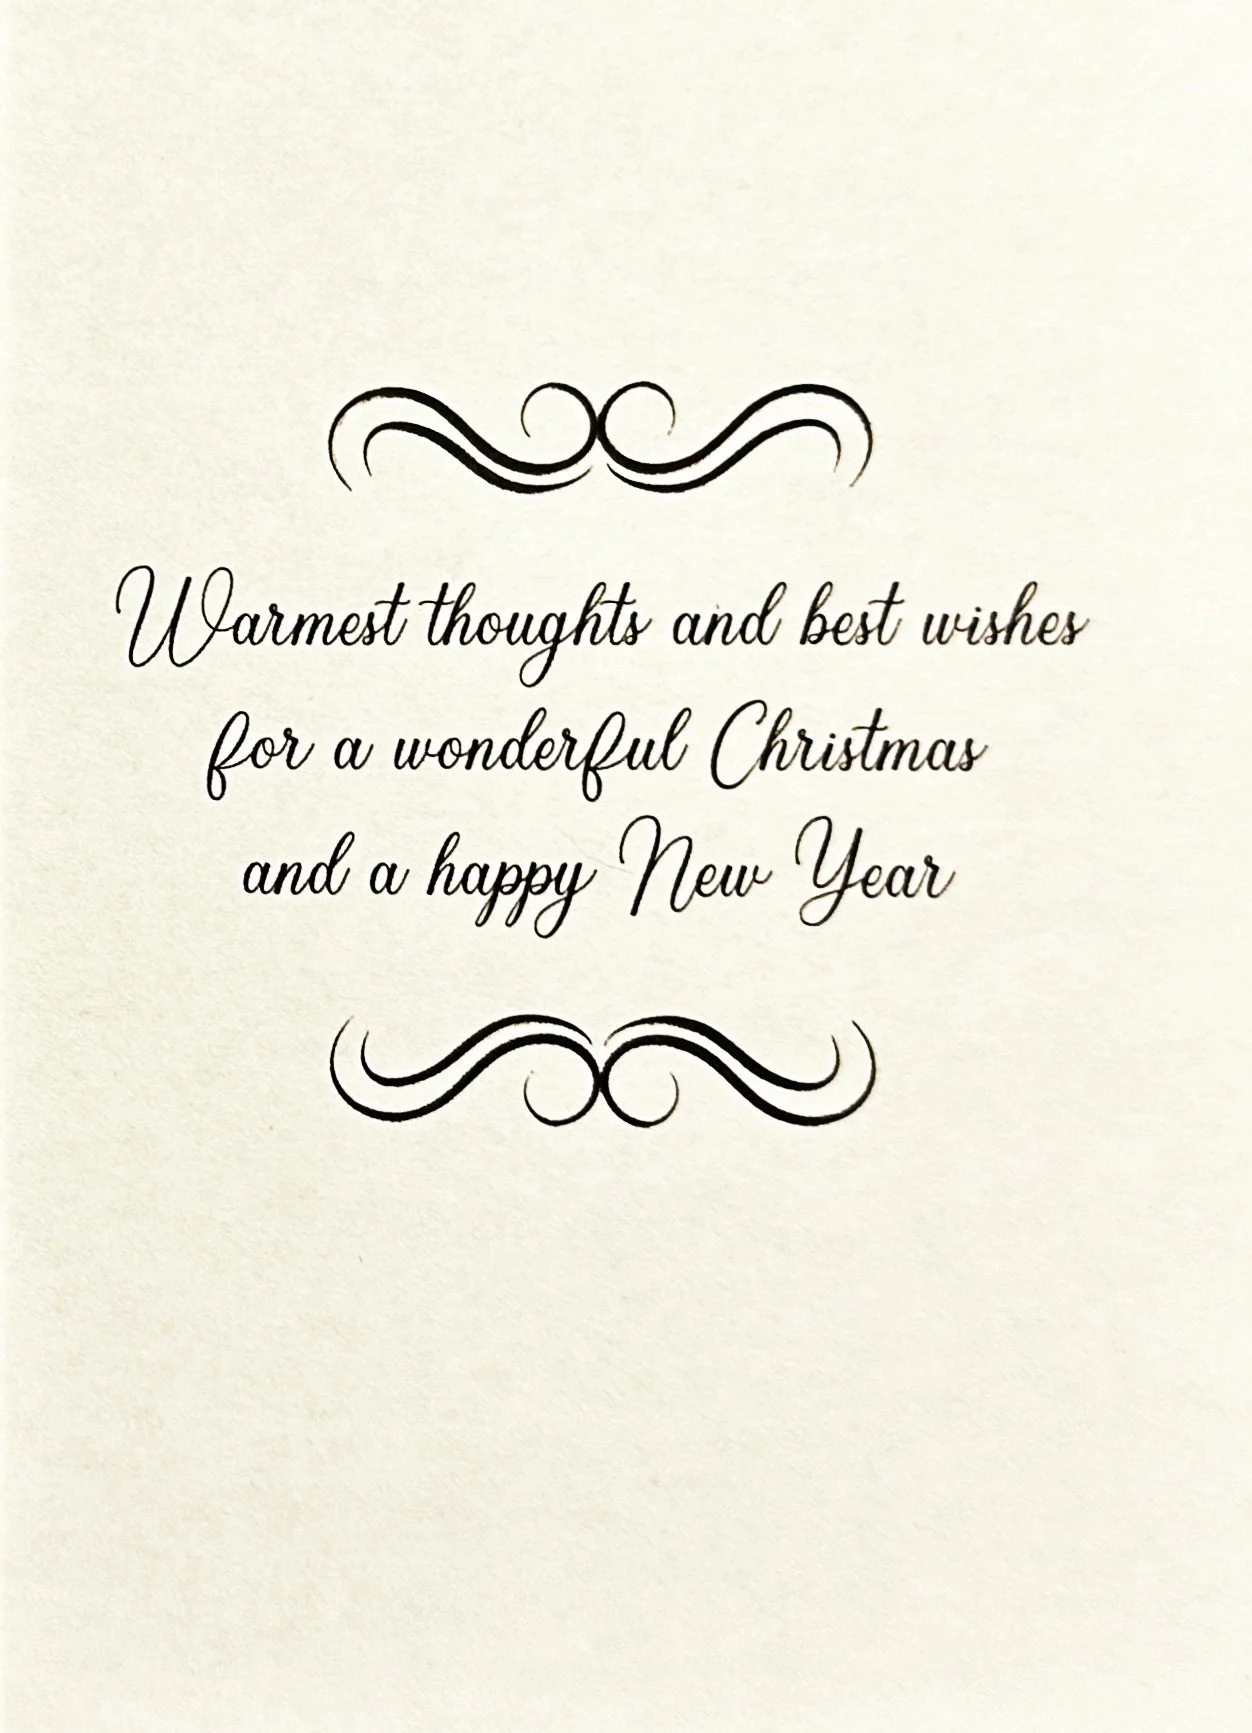 Warmest thoughts and best wishes
for a wonderful Christmas
and a happy New Year